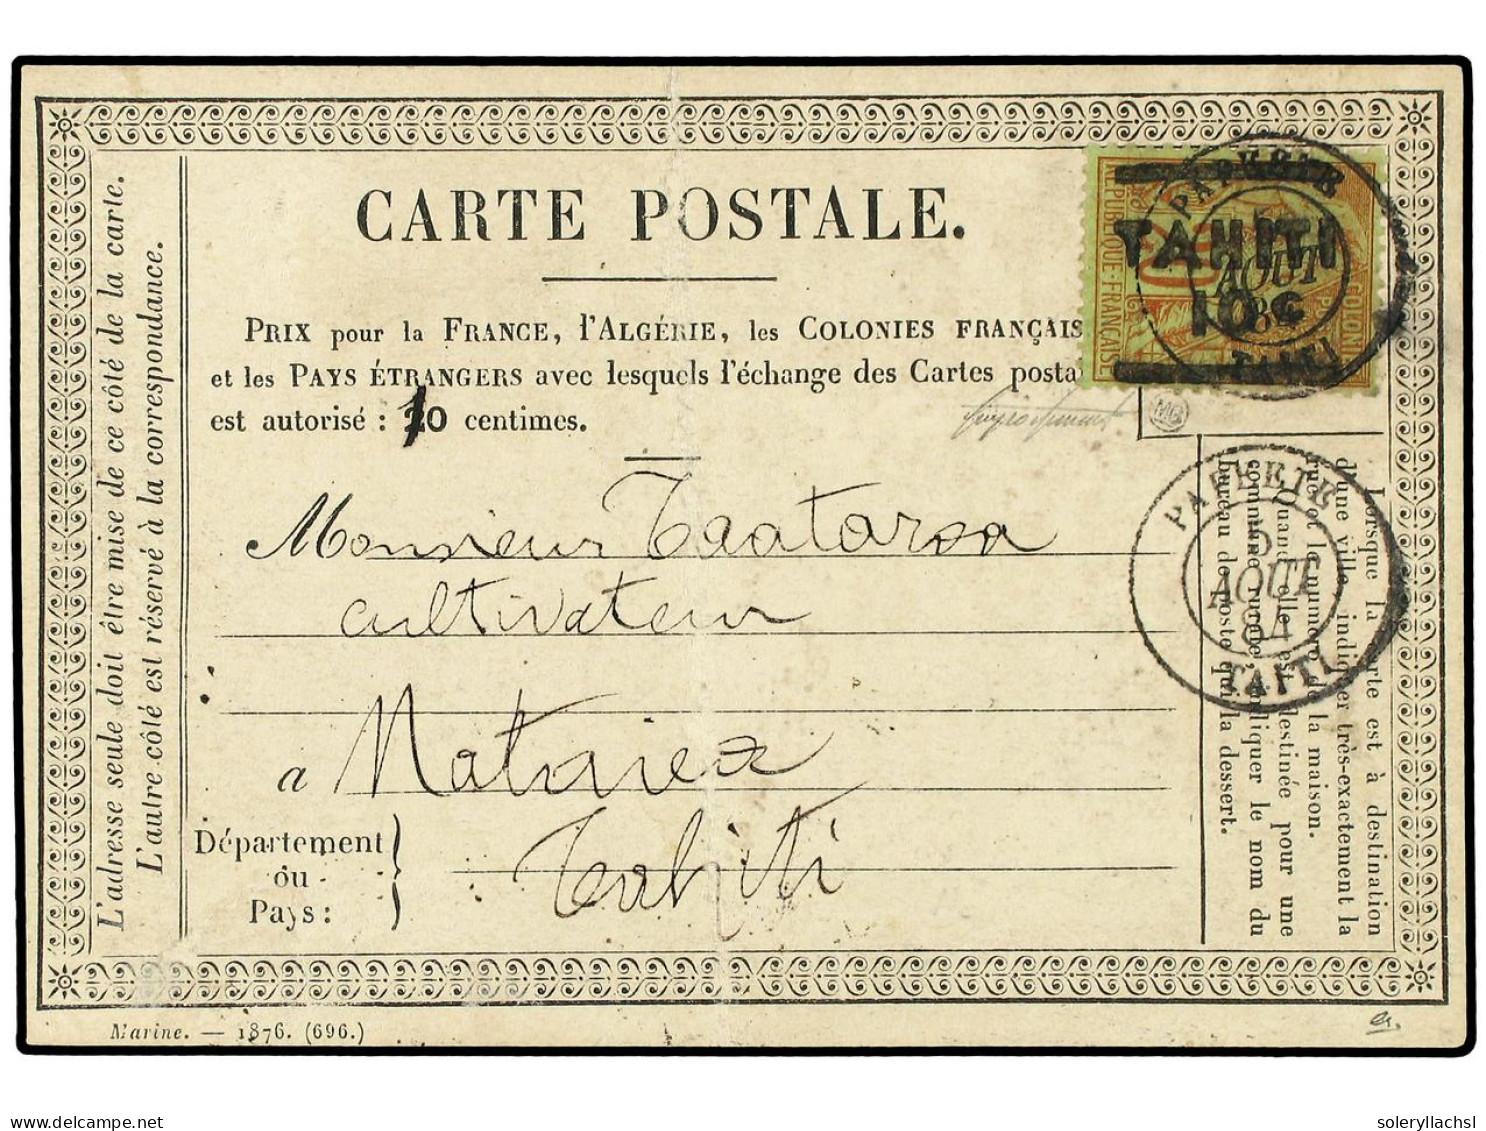 CARTE POSTALE.
PRIX pour la FRANCE, l'ALGÉRIE, les COLONIES FRANÇAIS
et les PAYS ÉTRANGERS avec lesquels l'échange des Cartes posta
est autorisé : 10 centimes.
Monsieur Taataroa
cultivateur
a Mataiea
Département
ou
Pays :
Tahiti
L'adresse seule doit être mise de ce côté de la carte.
L'autre côté est réservé à la correspondance.
RÉPUBLIQUE-FRANÇAISE
COLONI
20
TAHITI
10 c
PAPEETE
AOUT
84
TAITI
MG
PAPEETE
5
AOUT
84
TAITI
Lorsque la carte est à destination
d'une ville, indiquer très-exactement la
rue et le numéro de la maison.
Quand elle est destinée pour une
commune rurale, indiquer le nom du
bureau de poste qui la dessert.
Marine. — 1876. (696.)
Private collection on delcampe.net
soleryllachsl